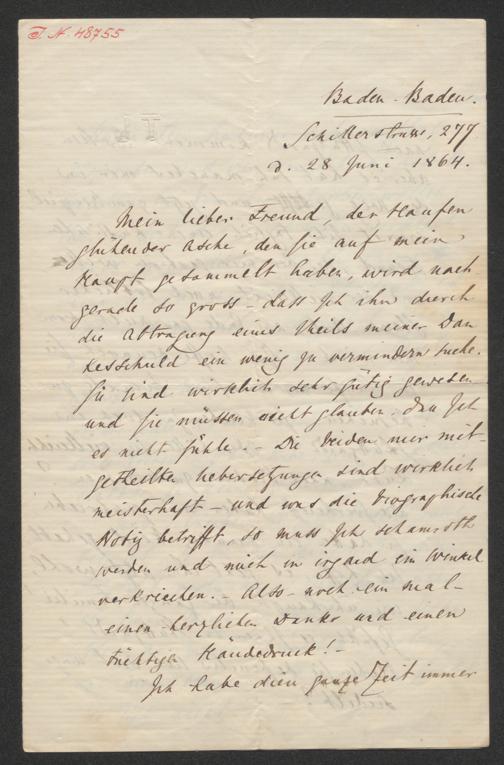 J. N. 48755
I T
Baden-Baden.
Schillerstrasse, 277
d. 28 Juni 1864.
Mein lieber Freund, der Haufen
glühender Asche, den Sie auf mein
Haupt gesammelt haben, wird nach
gerade so gross – dass Ich ihn durch
die Abtragung eines Theils meiner Dan
kesschuld ein wenig zu vermindern suche.
Sie sind wirklich sehr gütig gewesen
und Sie müssen nicht glauben, dass Ich
es nicht fühle. – Die beiden mir mit-
getheilten Uebersetzungen sind wirklich
meisterhaft – und was die biographische
Notiz betrifft, so muss Ich schamroth
werden und mich in irgend ein Winkel
verkriechen. – Also – noch ein mal –
einen herzlichen Danke und einen
tüchtigen Händedruck! –
Ich habe diese ganze Zeit immer